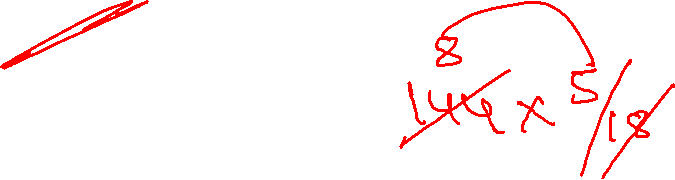 8
144 x 5/18